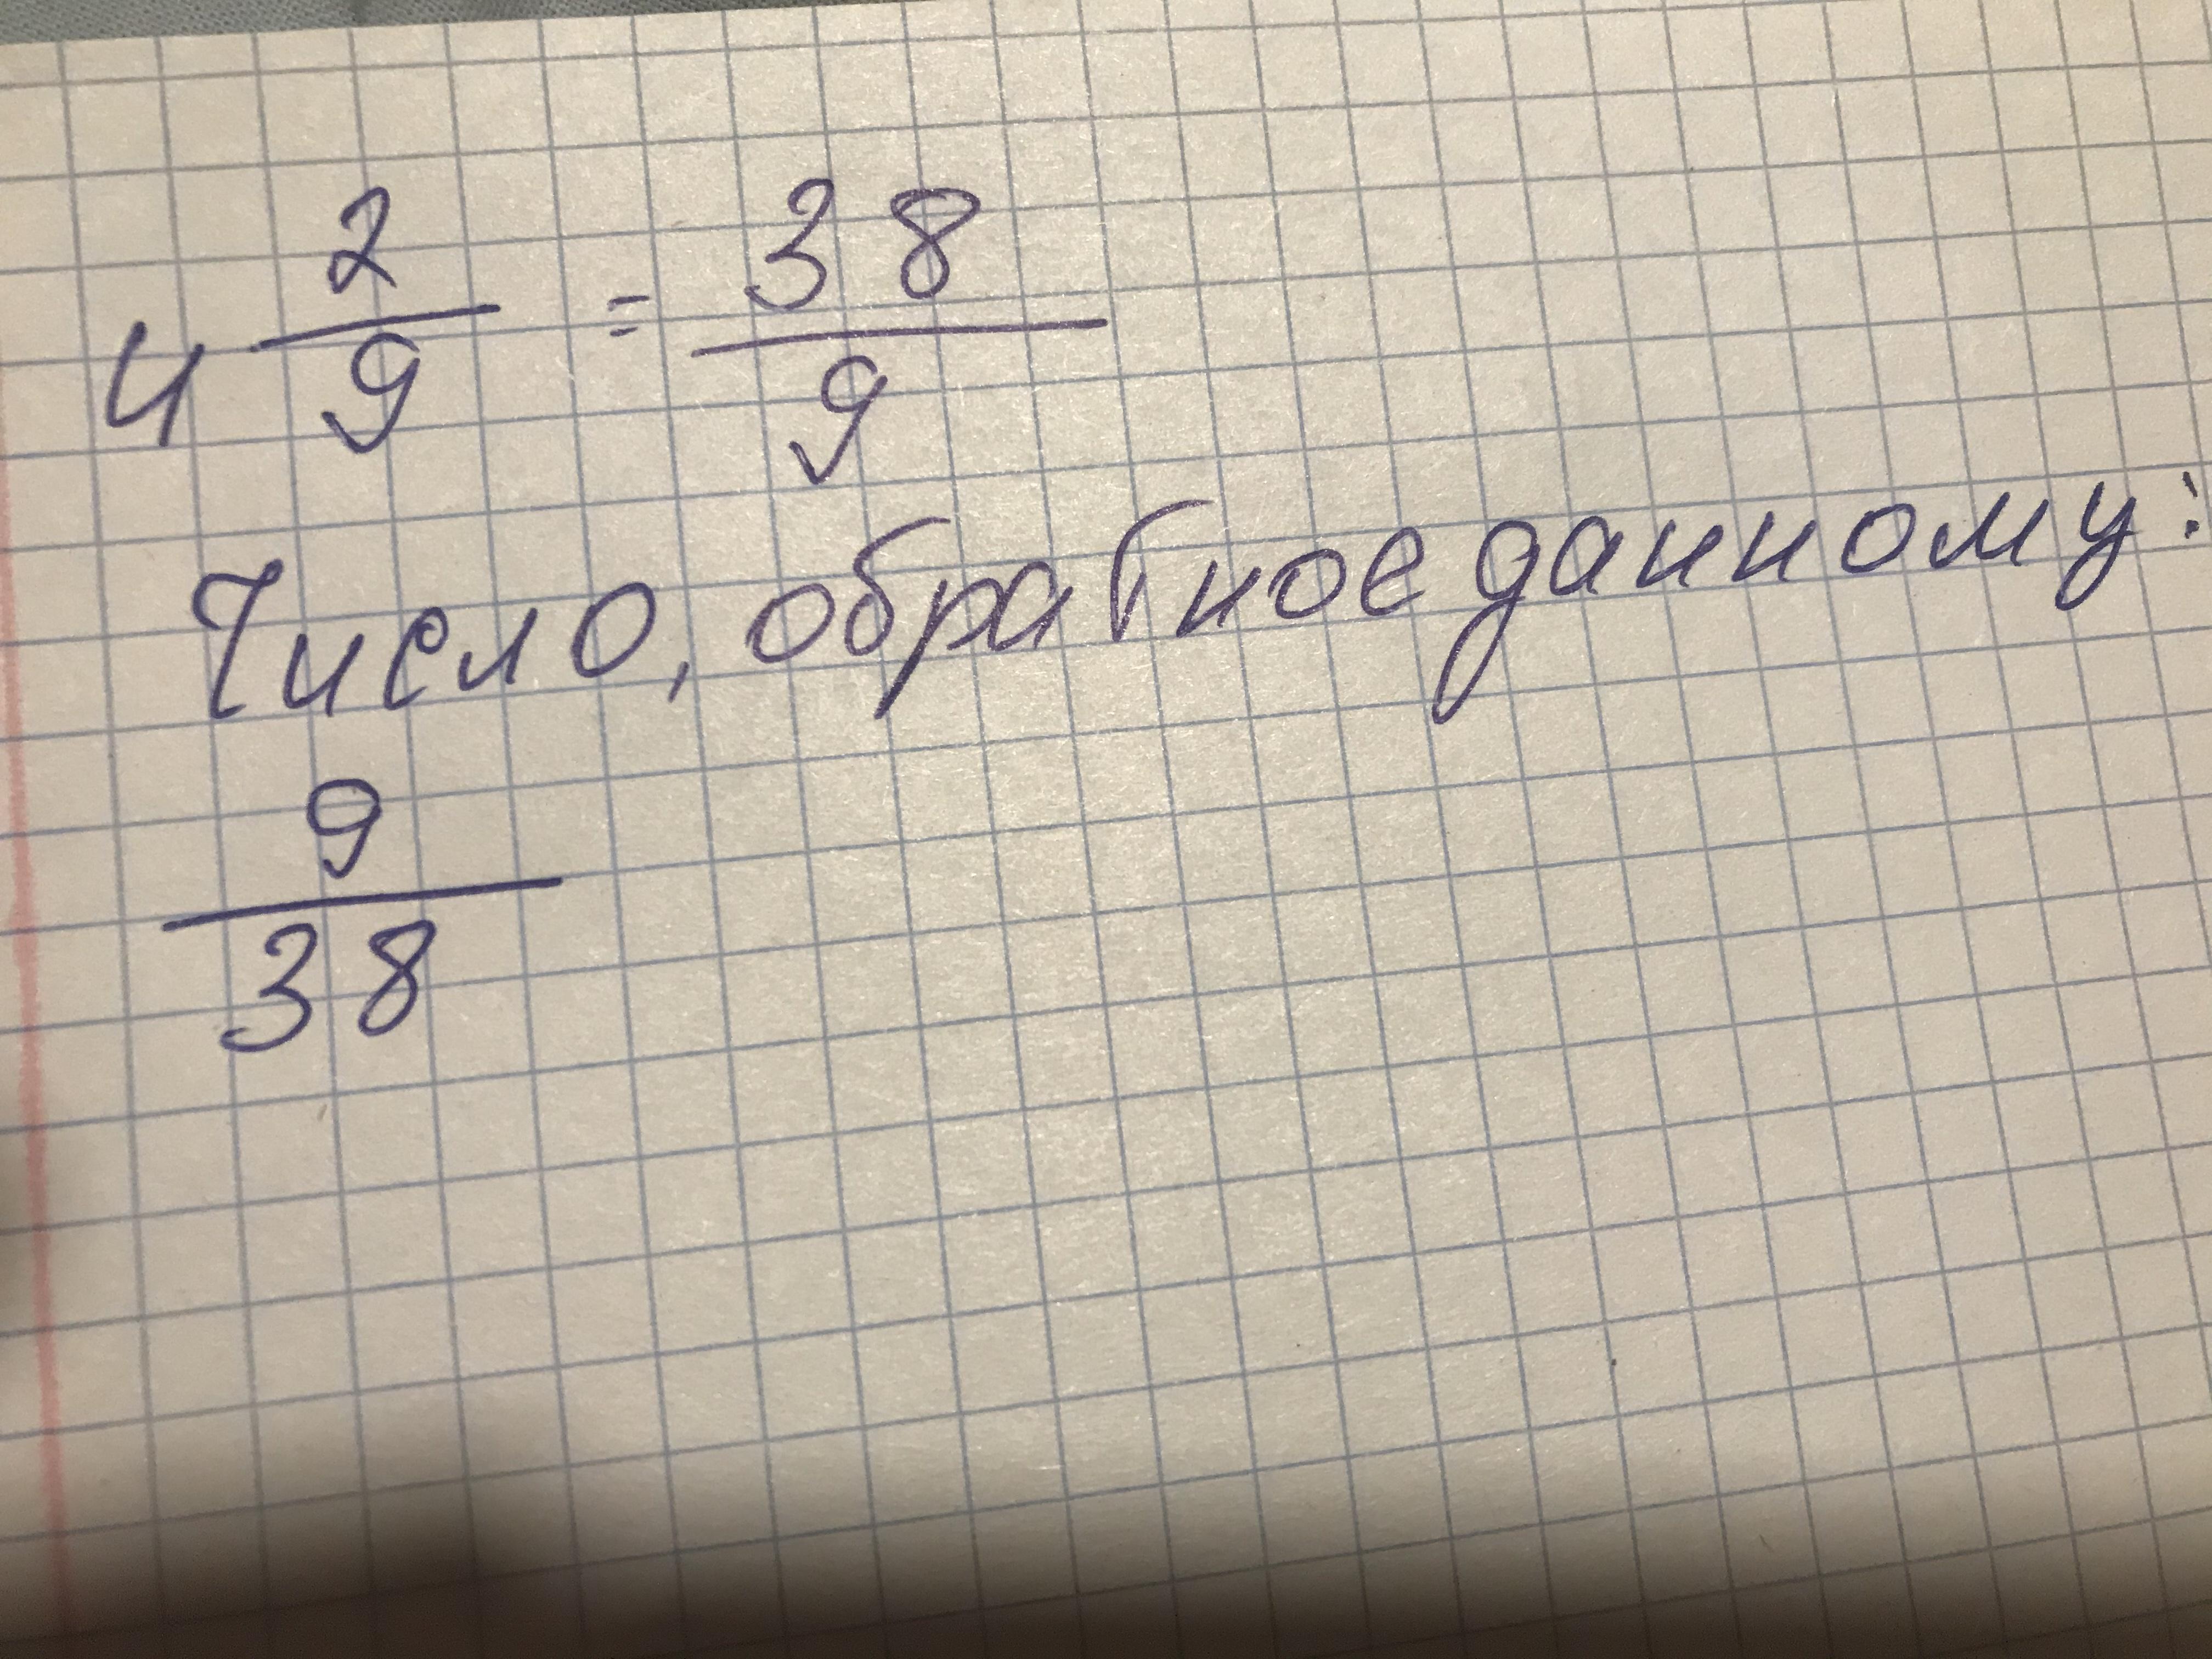 4 2/9 = 38/9
Число, обратное данному:
9/38